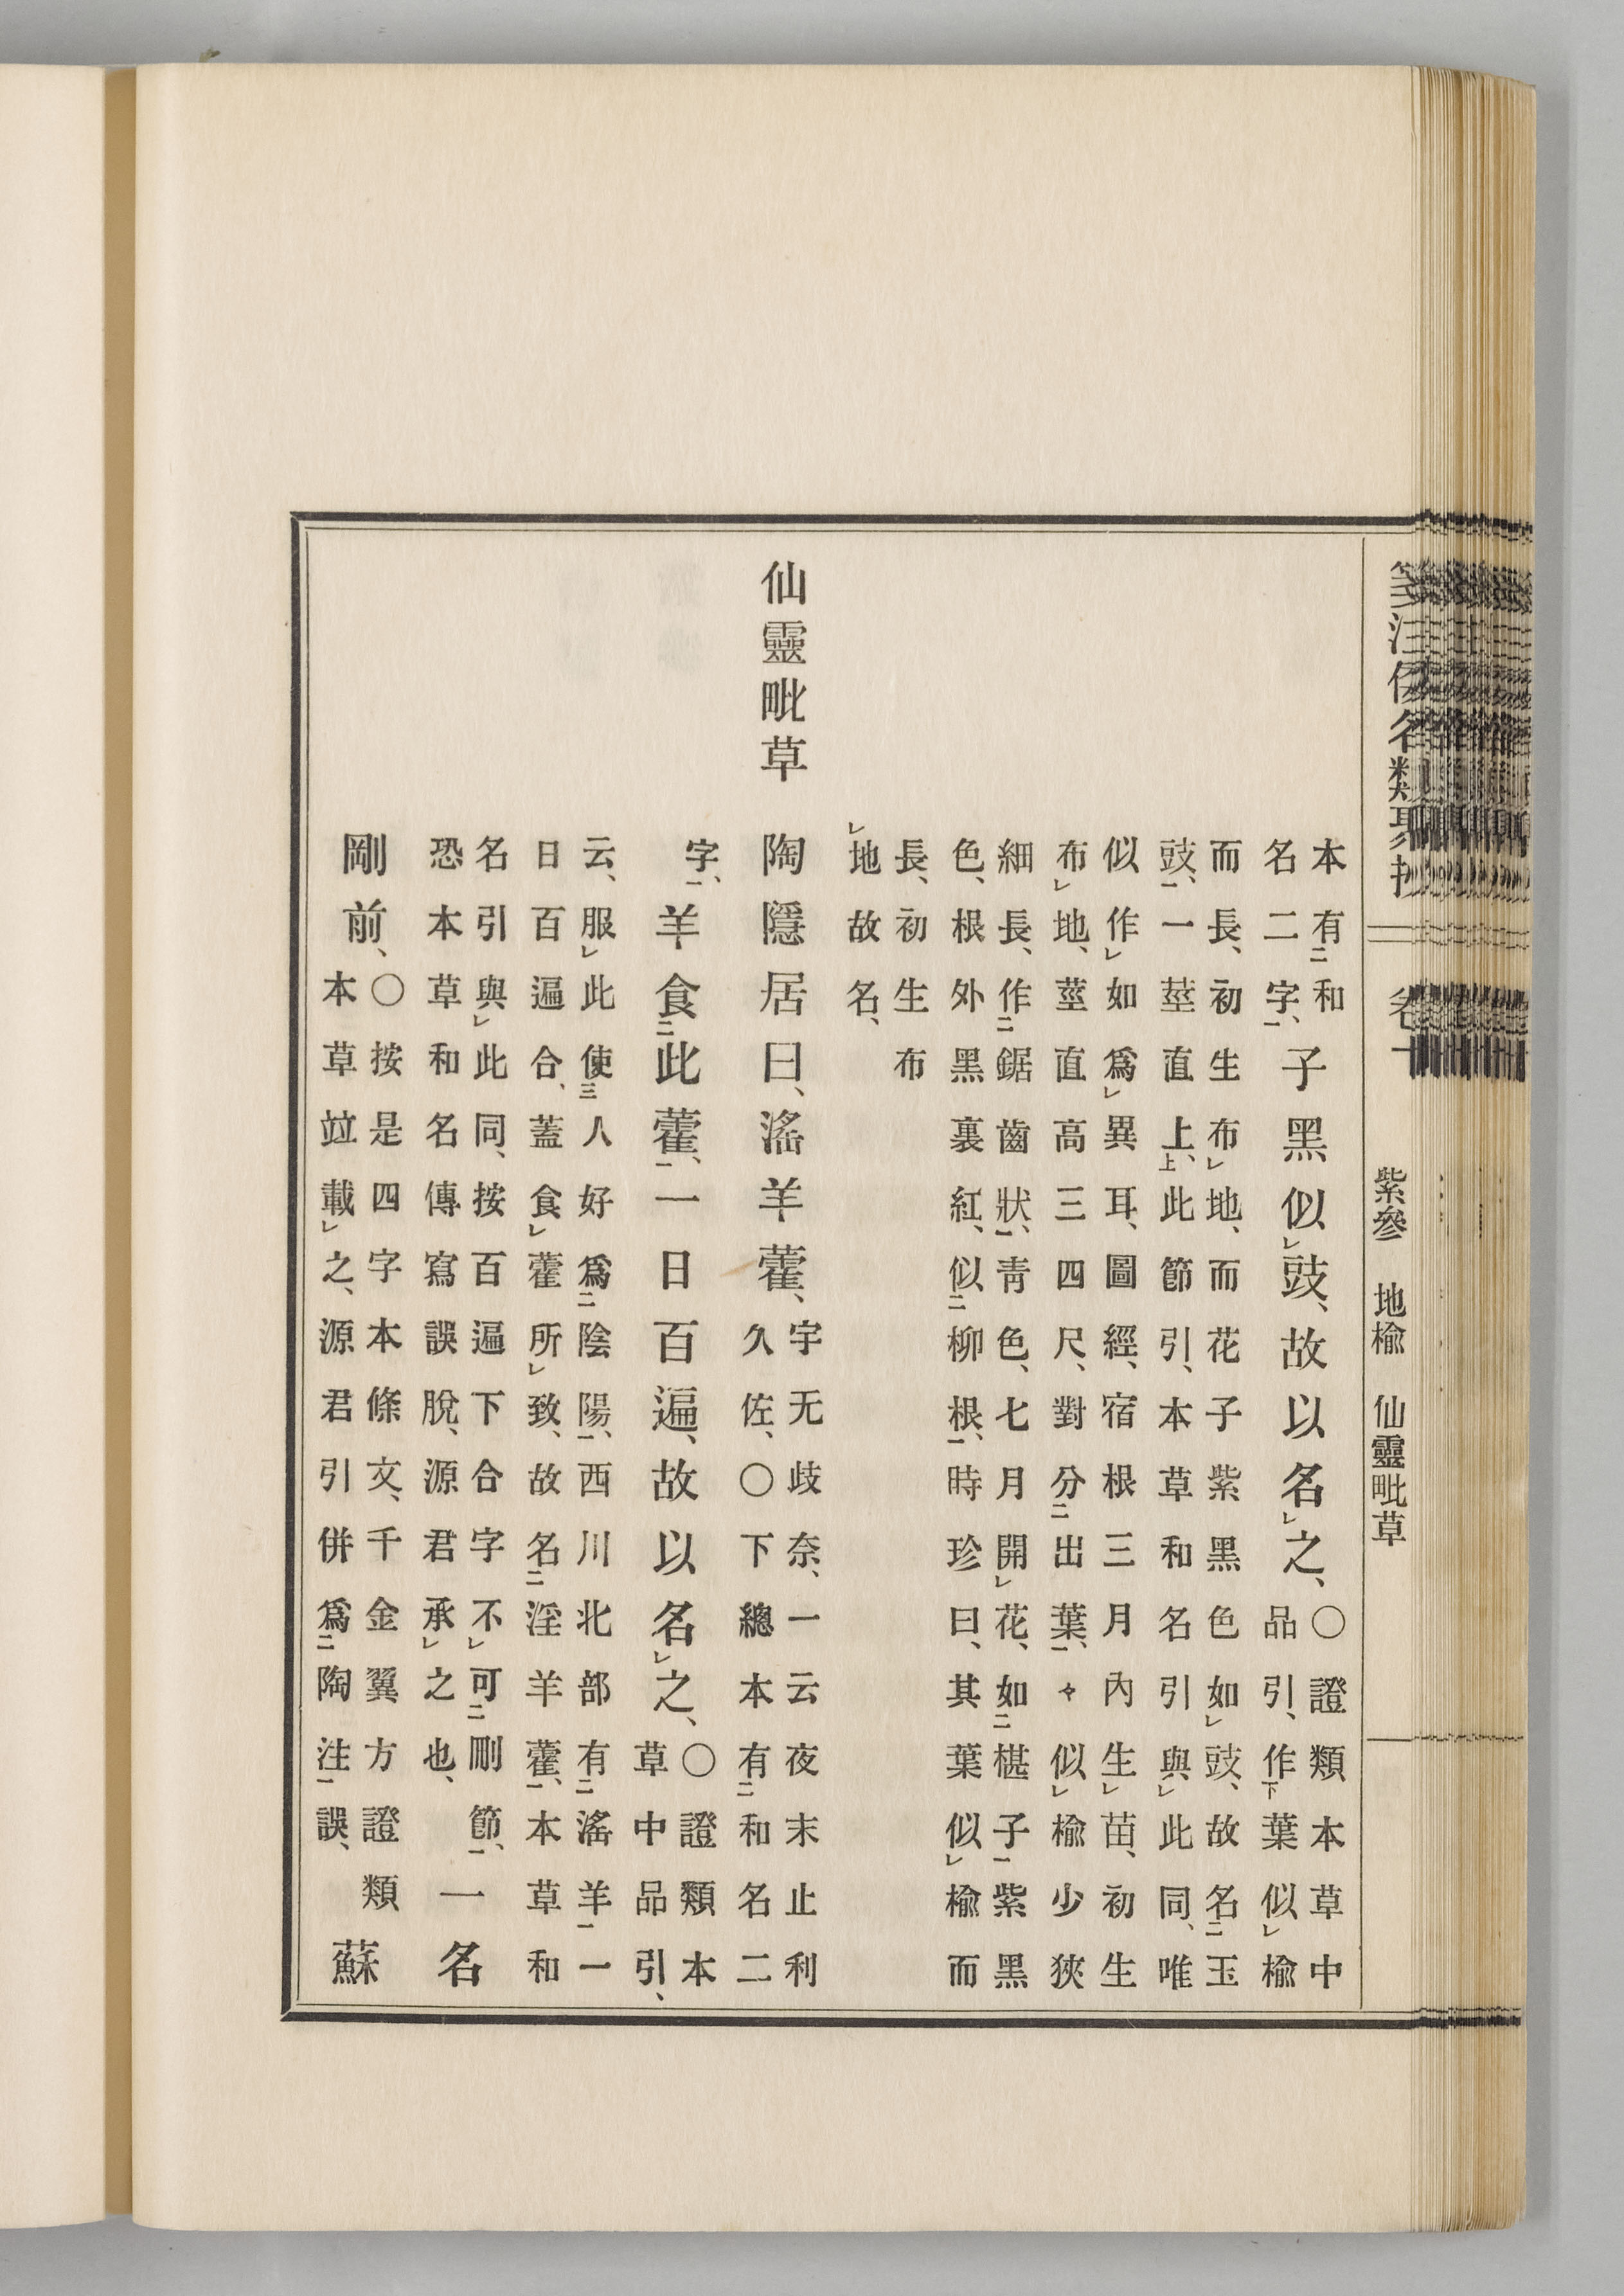 箋注倭名類聚抄 卷十 紫參 地楡 仙靈毗草
本有㆓和名二字㆒、子黑似㆑豉、故以名㆑之、○證類本草中品引、作㆘葉似㆑楡
而長、初生布㆑地、而花子紫黑色如㆑豉、故名㆓玉
豉㆒、一莖直上㆖、此節引、本草和名引與㆑此同、唯
似作㆑如爲㆑異耳、圖經、宿根三月內生㆑苗、初生
布㆑地、莖直高三四尺、對分㆓出葉㆒、々似㆑楡少狹
細長、作㆓鋸齒狀㆒、靑色、七月開㆑花、如㆓椹子㆒紫黑
色、根外黑裏紅、似㆓柳根㆒、時珍曰、其葉似㆑楡而
長、初生布
㆑地故名、
仙靈毗草 陶隱居曰、滛羊藿、宇无歧奈、一云夜末止利久佐、○下總本有㆓和名二
字㆒、羊食㆓此藿㆒、一日百遍、故以名㆑之、○證類本草中品引、
云、服㆑此使㆔人好爲㆓陰陽㆒、西川北部有㆓滛羊㆒一
日百遍合、蓋食㆑藿所㆑致、故名㆓淫羊藿㆒、本草和
名引與㆑此同、按百遍下合字不㆑可㆓刪節㆒、恐本草和名傳寫誤脫、源君承㆑之也、一名
剛前、○按是四字本條文、千金翼方證類本草竝載㆑之、源君引併爲㆓陶注㆒誤、蘇